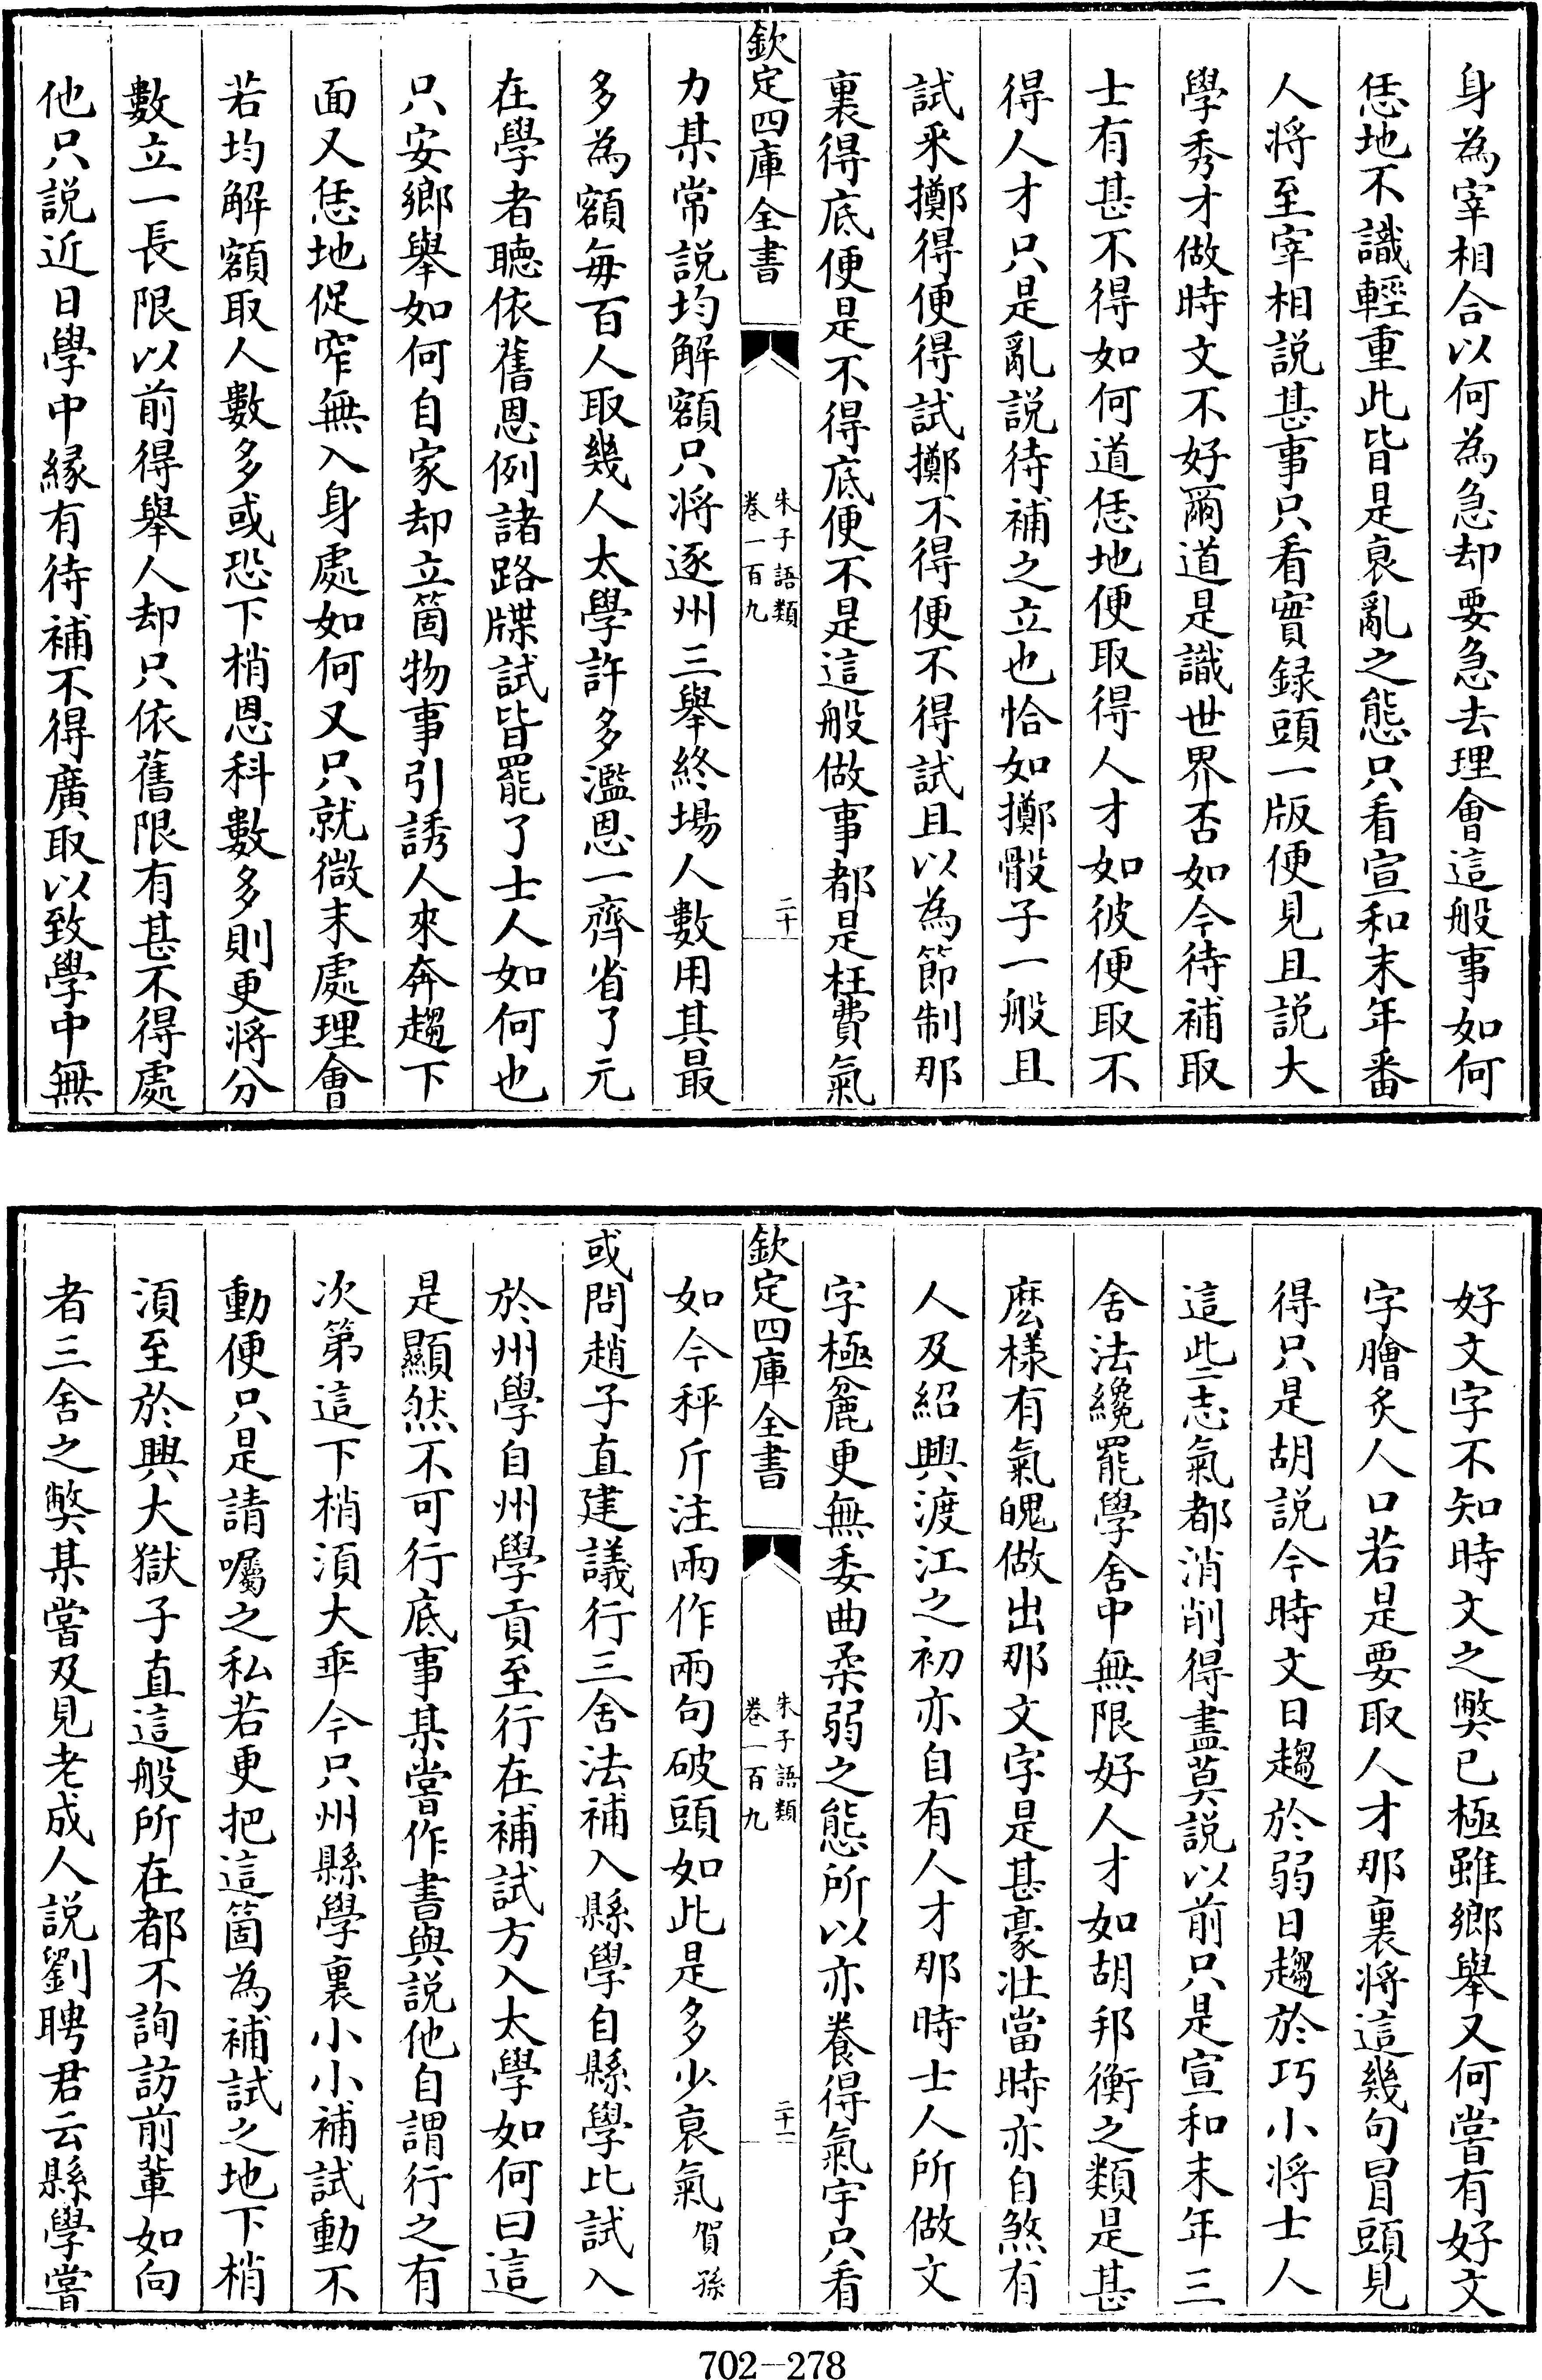 身為宰相合以何為急却要急去理會這般事如何
恁地不識輕重此皆是衰亂之態只看宣和末年番
人將至宰相説甚事只看實録頭一版便見且説大
學秀才做時文不好爾道是識世界否如今待補取
士有甚不得如何道恁地便取得人才如彼便取不
得人才只是亂説待補之立也恰如擲骰子一般且
試采擲得便得試擲不得便不得試且以為節制那
裏得底便是不得底便不是這般做事都是枉費氣
欽定四庫全書
朱子語類
卷一百九
二十
力某常説均解額只將逐州三舉終場人數用其最
多為額每百人取幾人太學許多濫恩一齊省了元
在學者聽依舊恩例諸路牒試皆罷了士人如何也
只安鄉舉如何自家却立箇物事引誘人來奔趨下
面又恁地促窄無入身處如何又只就微末處理會
若均解額取人數多或恐下梢恩科數多則更將分
數立一長限以前得舉人却只依舊限有甚不得處
他只説近日學中縁有待補不得廣取以致學中無
好文字不知時文之弊已極雖鄉舉又何嘗有好文
字膾炙人口若是要取人才那裏將這幾句冒頭見
得只是胡説今時文日趨於弱日趨於巧小將士人
這些志氣都消削得盡莫説以前只是宣和末年三
舍法纔罷學舍中無限好人才如胡邦衡之類是甚
麽樣有氣魄做出那文字是甚豪壮當時亦自煞有
人及紹興渡江之初亦自有人才那時士人所做文
字極麄更無委曲柔弱之態所以亦養得氣宇只看
欽定四庫全書
朱子語類
卷一百九
二十一
如今秤斤注兩作兩句破頭如此是多少衰氣賀孫
或問趙子直建議行三舍法補入縣學自縣學比試入
於州學自州學貢至行在補試方入太學如何曰這
是顯然不可行底事某嘗作書與説他自謂行之有
次第這下梢湏大乖今只州縣學裏小小補試動不
動便只是請囑之私若更把這箇為補試之地下梢
湏至於興大獄子直這般所在都不詢訪前輩如向
者三舍之弊某嘗及見老成人説劉聘君云縣學嘗
702-278